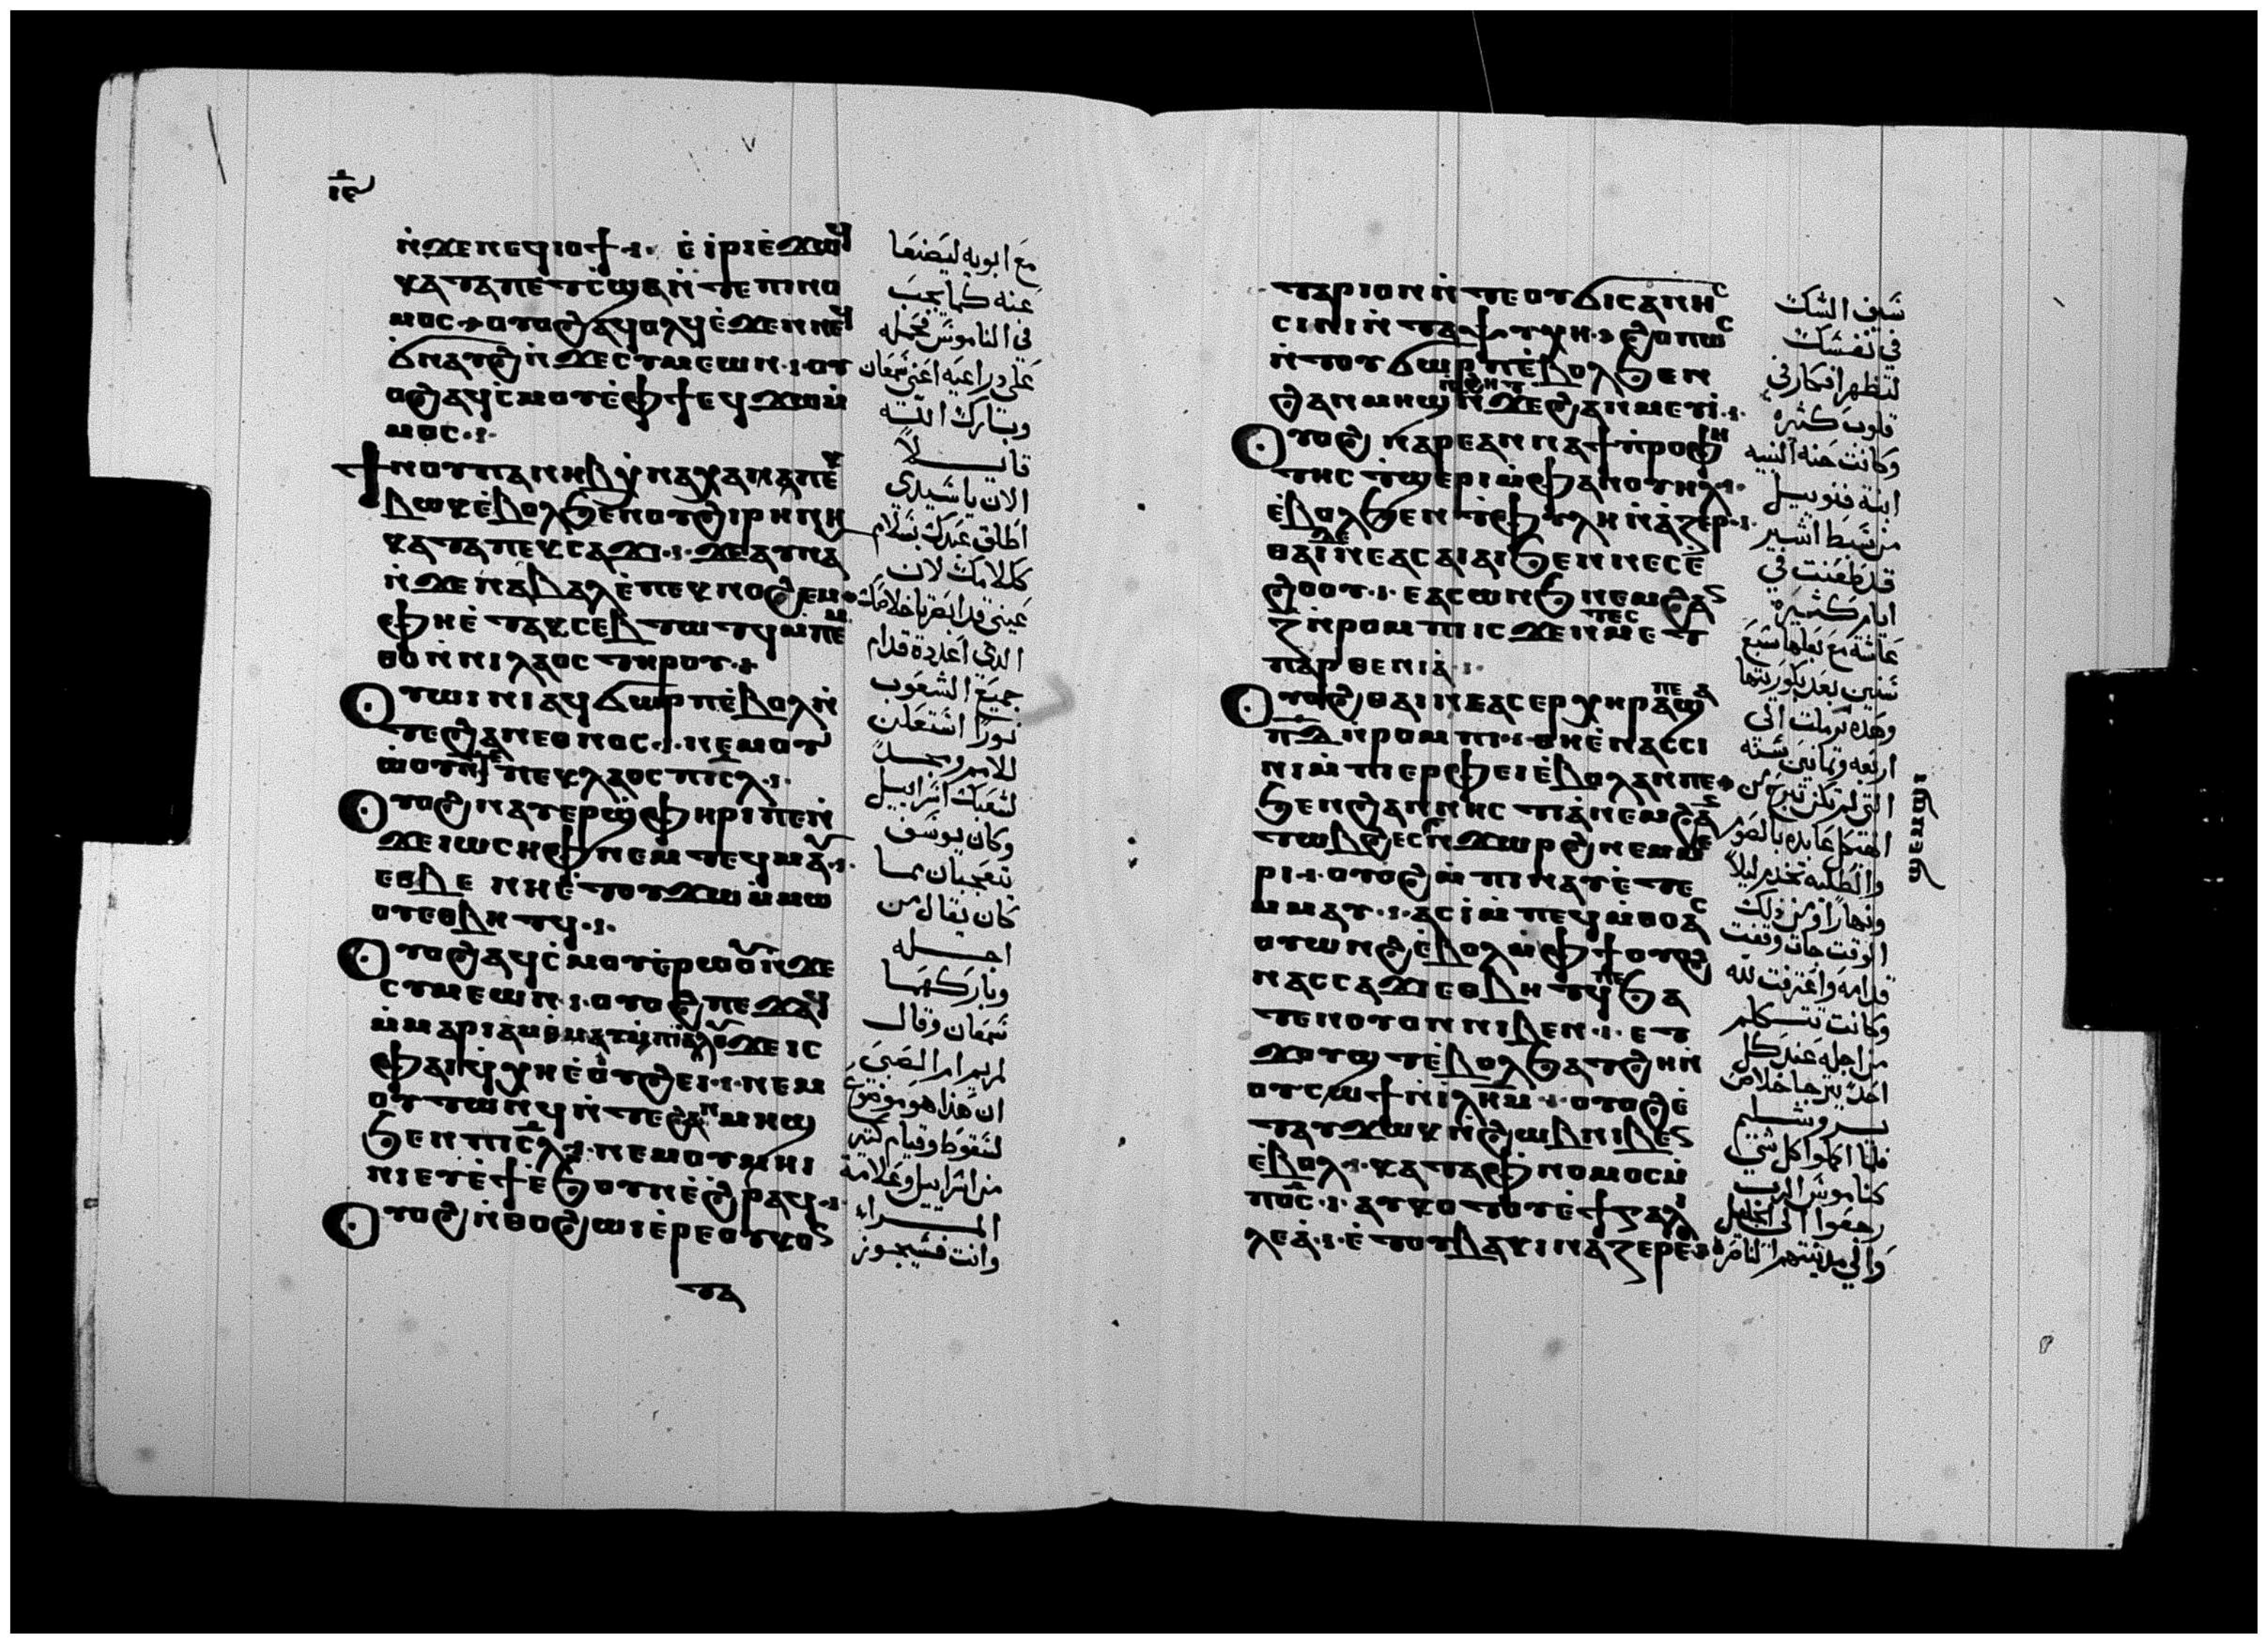 ⲓⲉ
ⲛ̇ϫⲉⲛⲉϥⲓⲟϯ· ⲉ̇ⲓ̇ⲣⲓⲉ̇ϫⲱϥ
ⲕⲁⲧⲁⲡⲉⲧⲥ̇ϣⲉⲛ̇ⲧⲉⲡⲓⲛⲟ
ⲙⲟⲥ ⲟⲩⲟϩⲁϥⲟⲗϥⲉ̇ϫⲉⲛⲛⲉϥ
ϭⲛⲁⲩϩⲛ̇ϫⲉⲥⲩⲙⲉⲱⲛ· ⲟⲩ
ⲟϩⲁϥⲥ̇ⲙⲟⲩⲉ̇ⲫϯⲉϥϫⲱⲙ̇
ⲙⲟⲥ·
ϯⲛⲟⲩⲡⲁⲛⲏⲃⲭ̇ⲛⲁⲭⲁⲙⲁⲡⲉⲕ
ⲃⲱⲕⲉ̇ⲃⲟⲗϧⲉⲛⲟⲩϩⲓⲣⲏⲛⲏ
ⲕⲁⲧⲁⲡⲉⲕⲥⲁϫⲓ· ϫⲉⲁⲩⲛⲁ
ⲛ̇ϫⲉⲛⲁⲃⲁⲗⲉ̇ⲡⲉⲕⲛⲟϩⲉⲙ
ⲫⲏⲉ̇ⲧⲁⲕⲥⲉⲃⲧⲱⲧϥⲙ̇ⲡⲉⲙ
ⲑⲟⲛ̇ⲛⲓⲗⲁⲟⲥ ⲧⲏⲣⲟⲩ·
Ⲟⲩⲱⲓⲛⲓⲁϥϭⲱⲣⲡⲉ̇ⲃⲟⲗⲛ̇
ⲧⲉϩⲁⲛⲉⲑⲛⲟⲥ· ⲛⲉⲙⲟⲩ
ⲱ̇ⲟⲩⲛ̇ⲧⲉⲡⲉⲕⲗⲁⲟⲥ ⲡⲓⲥⲗ·
Ⲟⲩⲟϩⲛⲁⲩⲉⲣϣ̇ⲫⲏⲣⲓⲡⲉⲛ̇
ϫⲉⲓⲱⲥⲏⲫⲛⲉⲙⲧⲉϥⲙⲁⲩ·
ⲉⲑⲃⲉ ⲛⲏⲉ̇ⲧⲟⲩϫⲱⲙ̇ⲙⲱ
ⲟⲩⲉⲑⲃⲏⲧϥ·
Ⲟⲩⲟϩⲁϥⲥ̇ⲙⲟⲩⲉ̇ⲣⲱⲟⲩⲛ̇ϫⲉ
ⲥⲩⲙⲉⲱⲛ· ⲟⲩⲟϩⲡⲉϫⲁϥ
ⲙ̇ⲙⲁⲣⲓⲁⲙⲑⲙⲁⲩⲙ̇ⲡⲓⲁⲗⲟⲩϫⲉⲓⲥ
ⲫⲁⲓϥ̇ⲭⲏⲉ̇ⲟⲩϩⲉⲓ· ⲛⲉⲙ
ⲟⲩⲧⲱⲛϥⲛ̇ⲧⲉϩⲁⲛⲙⲏϣ
ϧⲉⲛⲡⲓⲥ̅ⲗ· ⲛⲉⲙⲟⲩⲙⲏⲓ
ⲛⲓⲉⲩⲉ̇ϯⲉ̇ϧⲟⲩⲛⲉ̇ϩⲣⲁϥ·
Ⲟⲩⲟϩⲛ̇ⲑⲟϩⲱⲓⲉ̇ⲣⲉⲟⲩⲕⲟⲥ
ⲧⲁ
مع ابويه ليصنعا
عنه كما يجب
في الناموس فحمله
على دراعيه اعني سمعان
وبارك الله
قايـلا
الان يا سيدي
اطلق عبدك بسلام
ككلامك لان
عيني قد ابصرتا خلاصك
الدي اعددة قدام
جميع الشعوب
نورًا استعلن
للامم ومجدًا
لشعبك اسراييل
وكان يوسف
يتعجبان مما
كان يقال من
اجـله
وباركهما
سمعان وقال
لمريم ام الصبي
ان هذا هو موضوع
لسقوط وقيام كثير
من اسراييل وعلامة
المـراه
وانت فسيجوز
ⲧⲁⲣⲓⲟⲛⲛ̇ⲧⲉⲟⲩϭⲓⲥⲁⲛⲏⲥ
ⲥⲓⲛⲓⲛ̇ⲧⲁⲯⲩⲭⲏ· ϩⲟⲡⲱⲥ
ⲛ̇ⲧⲟⲩϭⲱⲣⲡⲉ̇ⲃⲟⲗϧⲉⲛ
ϩⲁⲛⲙⲏϣⲛ̇ϩⲏⲧⲛ̇ϫⲉϩⲁⲛⲙⲉⲩⲓ̇·
Ⲟⲩⲟϩ ⲛⲁⲣⲉⲁⲛⲛⲁϯⲡ̇ⲣⲟⲫⲏ
ⲧⲏⲥ ⲧ̇ϣⲉⲣⲓⲙ̇ⲫⲁⲛⲟⲩⲏⲗ·
ⲉ̇ⲃⲟⲗϧⲉⲛⲧ̇ⲫⲩⲗⲏⲛ̇ⲁ̇ⲥⲏⲣ·
ⲑⲁⲓϫⲉⲛⲉⲁⲥⲁⲓⲁⲓϧⲉⲛⲛⲉⲥⲉ̇
ϩⲟⲟⲩ· ⲉⲁⲥⲱⲛϧⲛⲉⲙϩⲁⲓ
ⲍ̅ⲛ̇ⲣⲟⲙⲡⲓⲥϫⲉⲛⲧⲉⲥⲙⲉⲧ
ⲡⲁⲣⲑⲉⲛⲓⲁ̇·
Ⲟⲩⲟϩⲑⲁⲓⲛⲉⲁⲥⲉⲣⲭⲏⲣⲁⲡⲉϣⲁ
ⲡ̅ⲇ̅ⲛ̇ⲣⲟⲙⲡⲓ· ⲑⲏⲉ̇ⲛⲁⲥⲥⲓ
ⲛⲓⲙ̇ⲡⲓⲉⲣⲫⲉⲓⲉ̇ⲃⲟⲗⲁⲛⲡⲉ
ϧⲉⲛϩⲁⲛⲛⲏⲥⲧⲓⲁ̇ⲛⲉⲙϩⲁⲛ
ⲧⲱⲃϩⲉⲥϣⲉⲙϣⲓⲛ̇ϫⲱⲣϩⲛⲉⲙⲙⲉ
ⲣⲓ· ⲟⲩⲟϩⲙ̇ⲡⲓⲛⲁⲩⲉ̇ⲧⲉ
ⲙ̇ⲙⲁⲩ· ⲁⲥⲓ̇ⲙ̇ⲡⲉϥⲙ̇ⲑⲟⲁⲥ
ⲟⲩⲱⲛϩⲉ̇ⲃⲟⲗⲙ̇ⲫϯⲟⲩⲟϩ
ⲛⲁⲥⲥⲁϫⲓⲉⲑⲃⲏⲧϥⲡⲉϧⲁ
ⲧⲉⲛⲟⲩⲟⲛⲛⲓⲃⲉⲛ· ⲉⲧ
ϫⲟⲩϣⲧⲉ̇ⲃⲟⲗϧⲁⲧϩⲏⲛ̇
ⲟⲩⲥⲱϯⲛ̇ⲓ̇ⲗⲏⲙ· ⲟⲩⲟϩⲉ̇
ⲧⲁⲩϫⲱⲕⲛ̇ϩⲱⲃⲛⲓⲃⲉⲛ
ⲉ̇ⲃⲟⲗ· ⲕⲁⲧⲁⲫⲛⲟⲙⲟⲥⲙ̇
ⲡⲟ̅ⲥ̅· ⲁⲩⲕⲟⲧⲟⲩⲉ̇ϯⲅⲁⲗⲓ
ⲗⲉⲁ̇· ⲉ̇ⲧⲟⲩⲃⲁⲕⲓⲛⲁⲍⲉⲣⲉⲑ
سيف الشك
في نفسك
لتظهر افكار في
قلوب كثيره
وكانت حنه النبيه
ابنة فنوييل
من سبط اشير
قد طعنت في
ايام كثيره
عاشة مع بعلها سبع
سنين بعد بكوريتها
وهده ترملت الى
اربعه وتمانين سنة
التي لم تكن تبرح من
الهيكل عابده بالصوم
والطلبه تخدم ليلاً
ونهارًا وفي ذلك
الوقت جات وقفت
قدامه واعترفت لله
وكانت تتـكلم
من اجله عند كل
احد يترجا خلاص
يـروشـليم
فلما اكملوا كل شي
كناموس الرب
رجعوا الى الجليل
والي مدينتهم الناصره
ϣⲉⲙϣⲓ